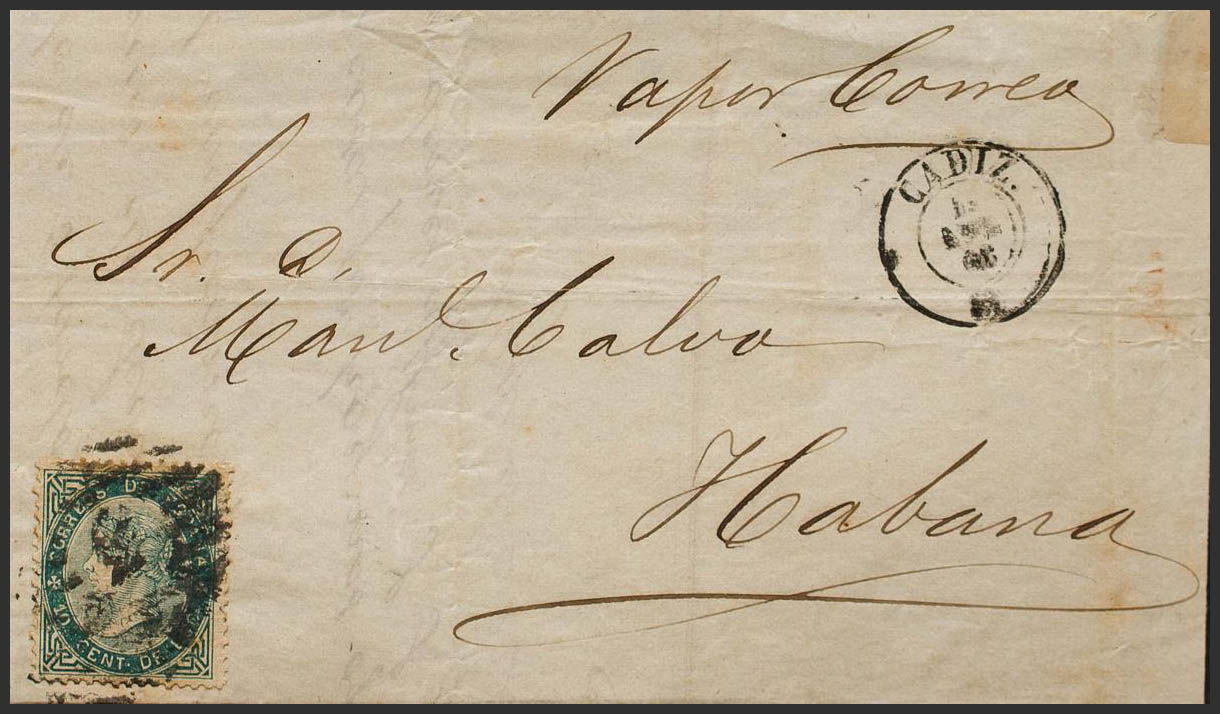 Vapor Correo
CADIZ.
Sr. D.
Manl. Calvo
Habana
CORREOS DE
10 CENT. DE